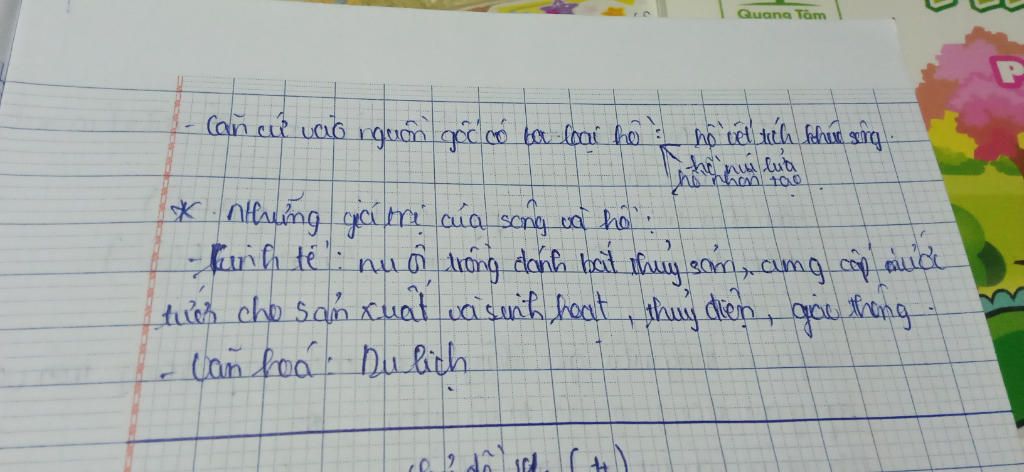 Quang Tâm
P
- Căn cứ vào nguồn gốc có ba loại hồ: hồ vết tích khúc sông.
hồ núi lửa
hồ nhân tạo
* Những giá trị của sông và hồ:
- Kinh tế: nuôi trồng đánh bắt thuỷ sản, cung cấp nước
cho sản xuất và sinh hoạt, thuỷ điện, giao thông.
- Văn hoá: Du lịch